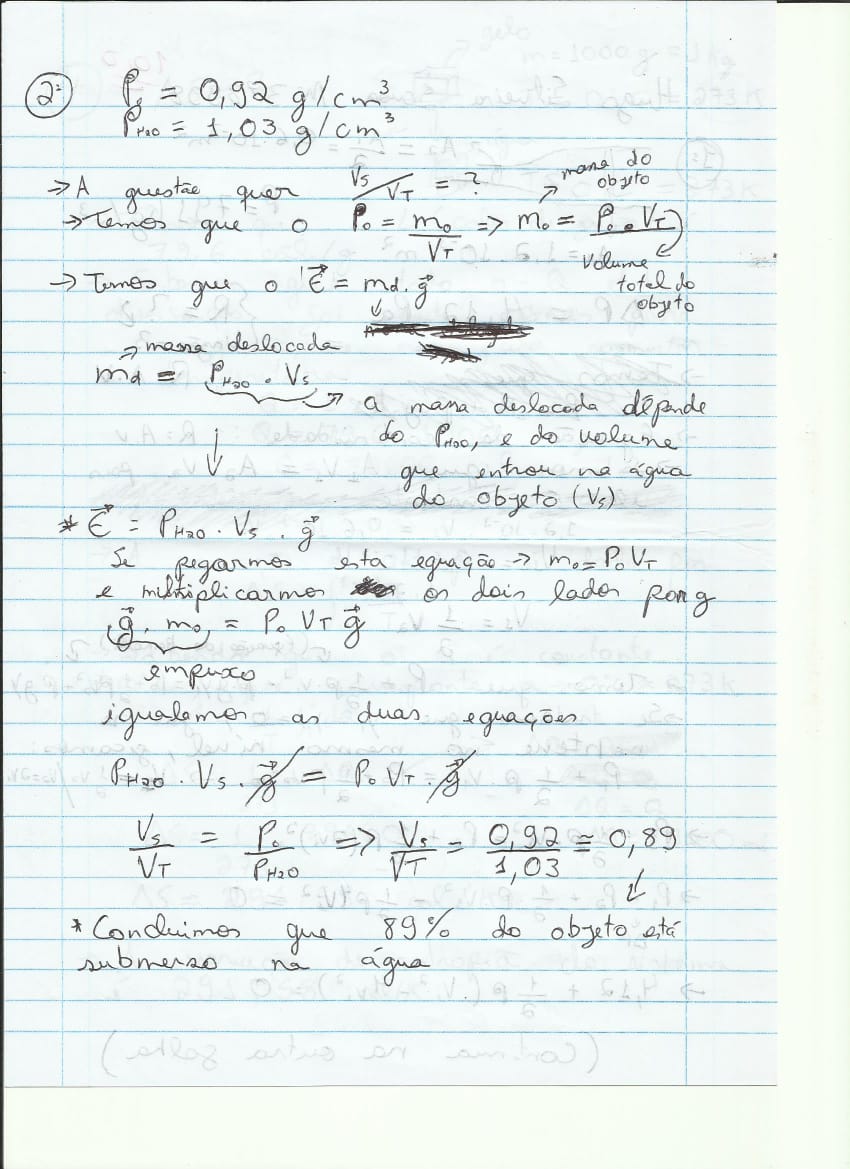 2ª ρg = 0,92 g/cm³
ρH2O = 1,03 g/cm³
→ A questão quer Vs/VT = ?
massa do objeto
→ Temos que o ρo = mo/VT => mo = ρo . VT
volume total do objeto
→ Temos que o E⃗ = md . g⃗
→ massa deslocada
md = ρH2O . Vs → a massa deslocada depende
do ρH2O, e do volume
que entrou na água
do objeto (Vs)
* E⃗ = ρH2O . Vs . g⃗
Se pegarmos esta equação → mo = ρo VT
e multiplicarmos os dois lados por g
g⃗ . mo = ρo VT g⃗
empuxo
igualemos as duas equações
ρH2O . Vs . g⃗ = ρo VT . g⃗
Vs/VT = ρo/ρH2O => Vs/VT = 0,92/1,03 ≅ 0,89
* Concluimos que 89% do objeto está
submerso na água